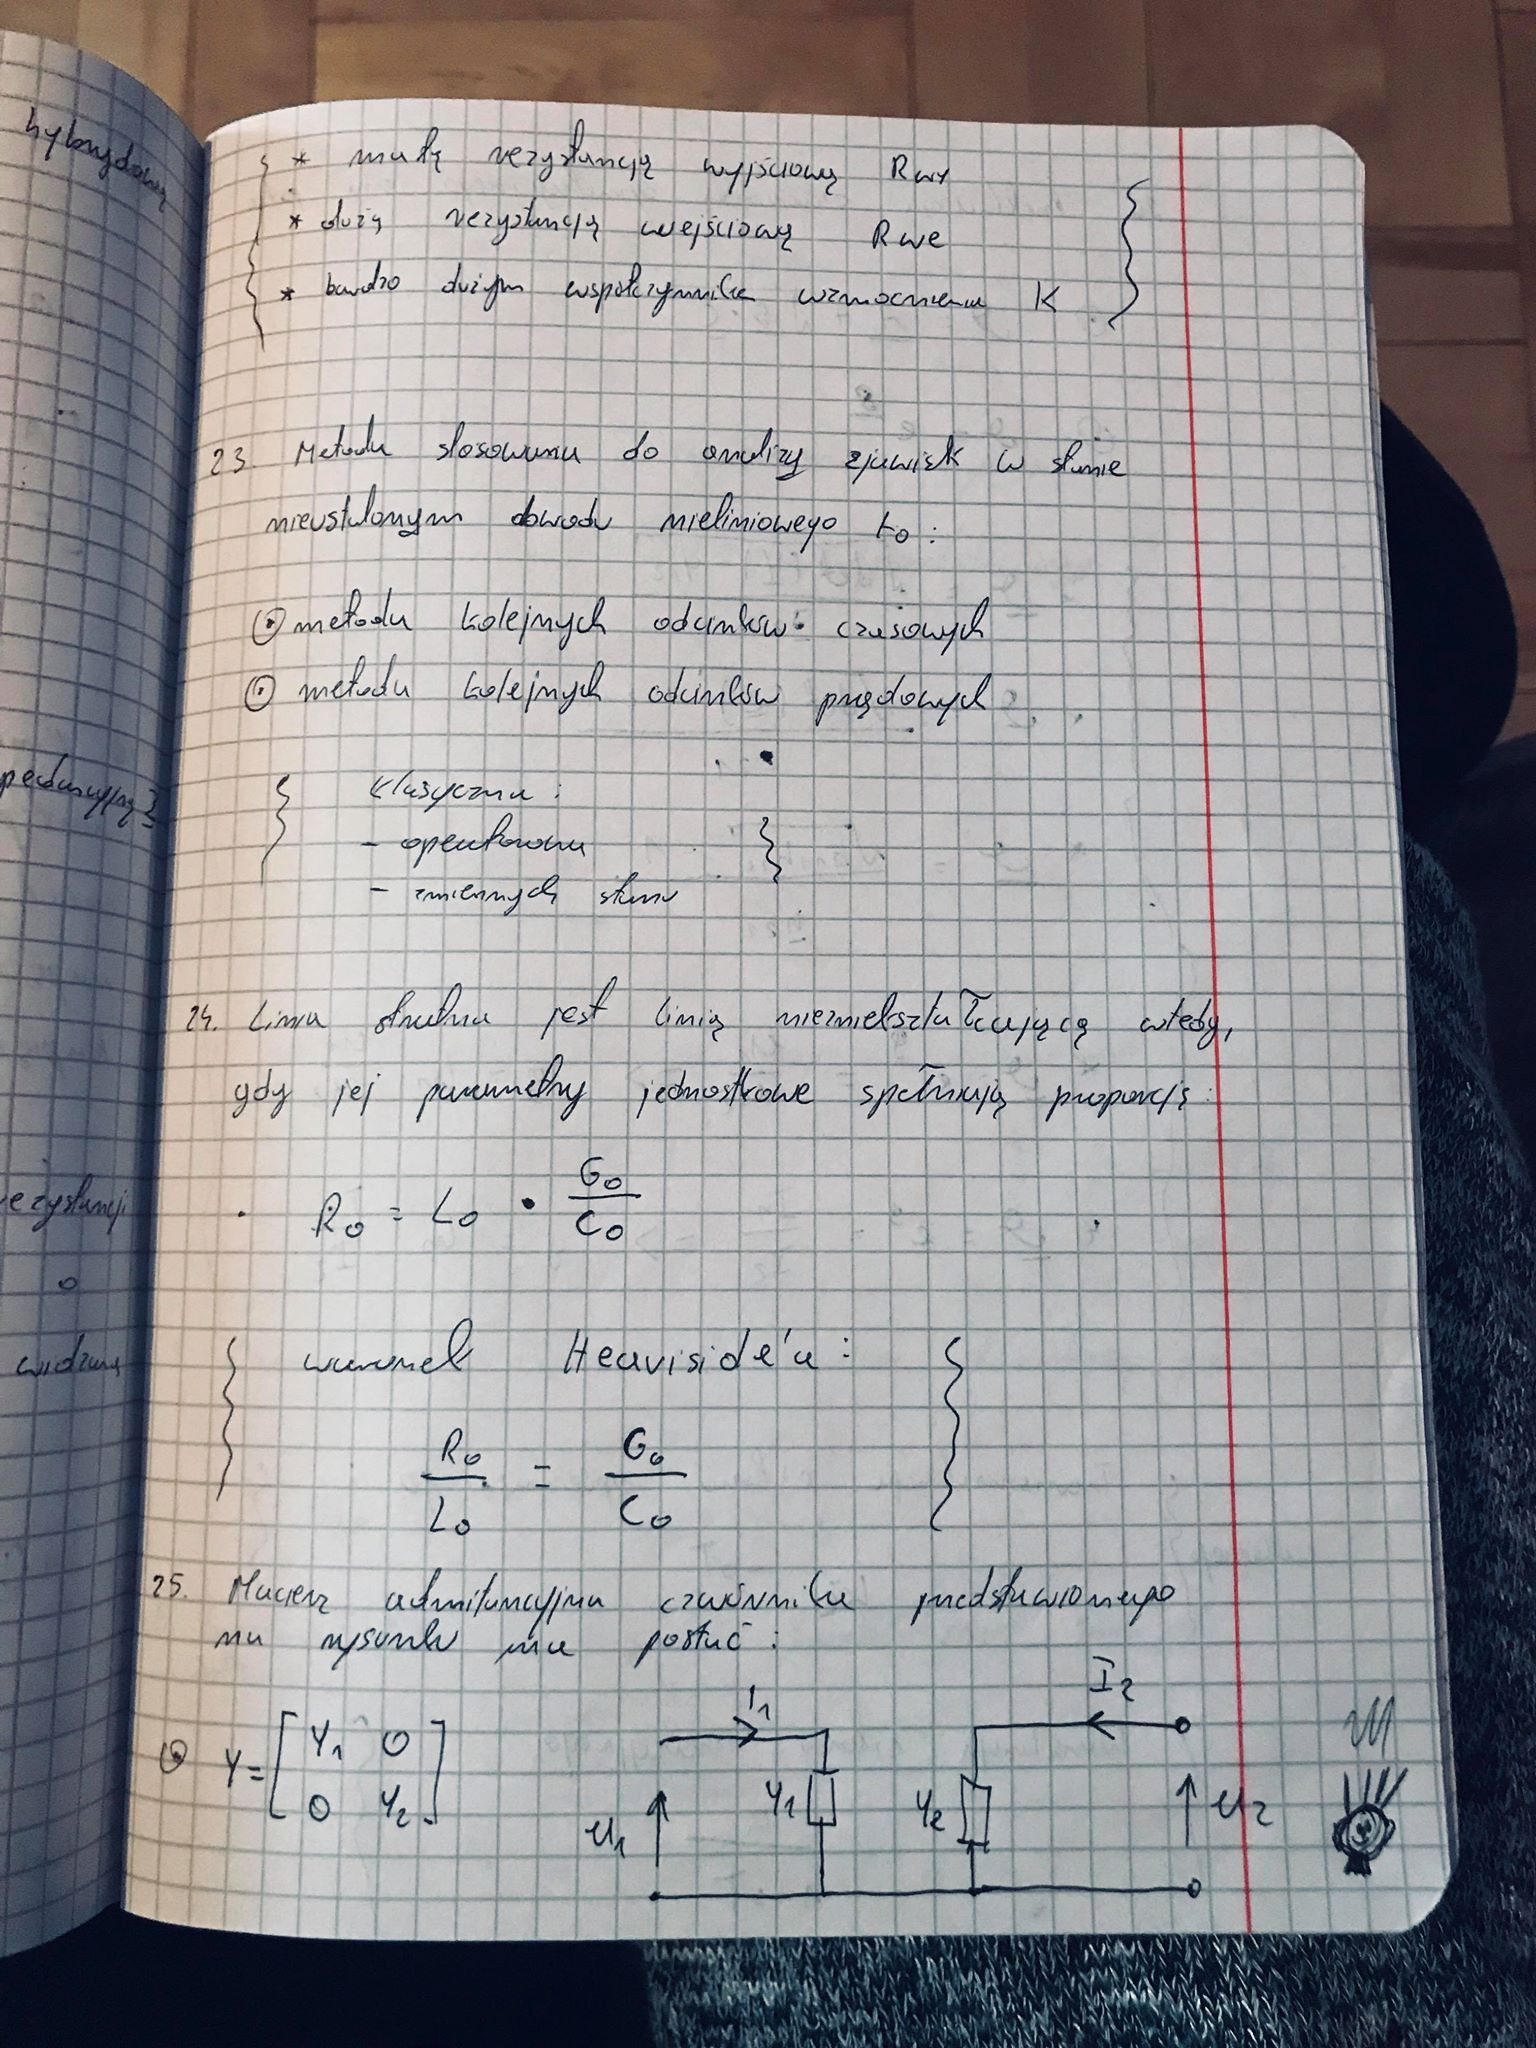 hybrydową
* małą rezystancją wyjściową Rwy
* dużą rezystancją wejściową Rwe
* bardzo dużym współczynnika wzmocnienia K
23. Metoda stosowana do analizy zjawisk w stanie
nieustalonym obwodu nieliniowego to:
metoda kolejnych odcinków czasowych
metoda kolejnych odcinków prądowych
klasyczna:
- operatorowa
- zmiennych stanu
24. Linia stratna jest linią niezniekształcającą wtedy,
gdy jej parametry jednostkowe spełniają proporcję:
R₀ = L₀ · G₀/C₀
rezystancji
o
widzianą
warunek Heaviside'a:
R₀/L₀ = G₀/C₀
25. Macierz admitancyjna czwórnika przedstawionego
na rysunku ma postać:
I₁ I₂
Y = [Y₁ 0
0 Y₂]
U₁ Y₁ Y₂ U₂